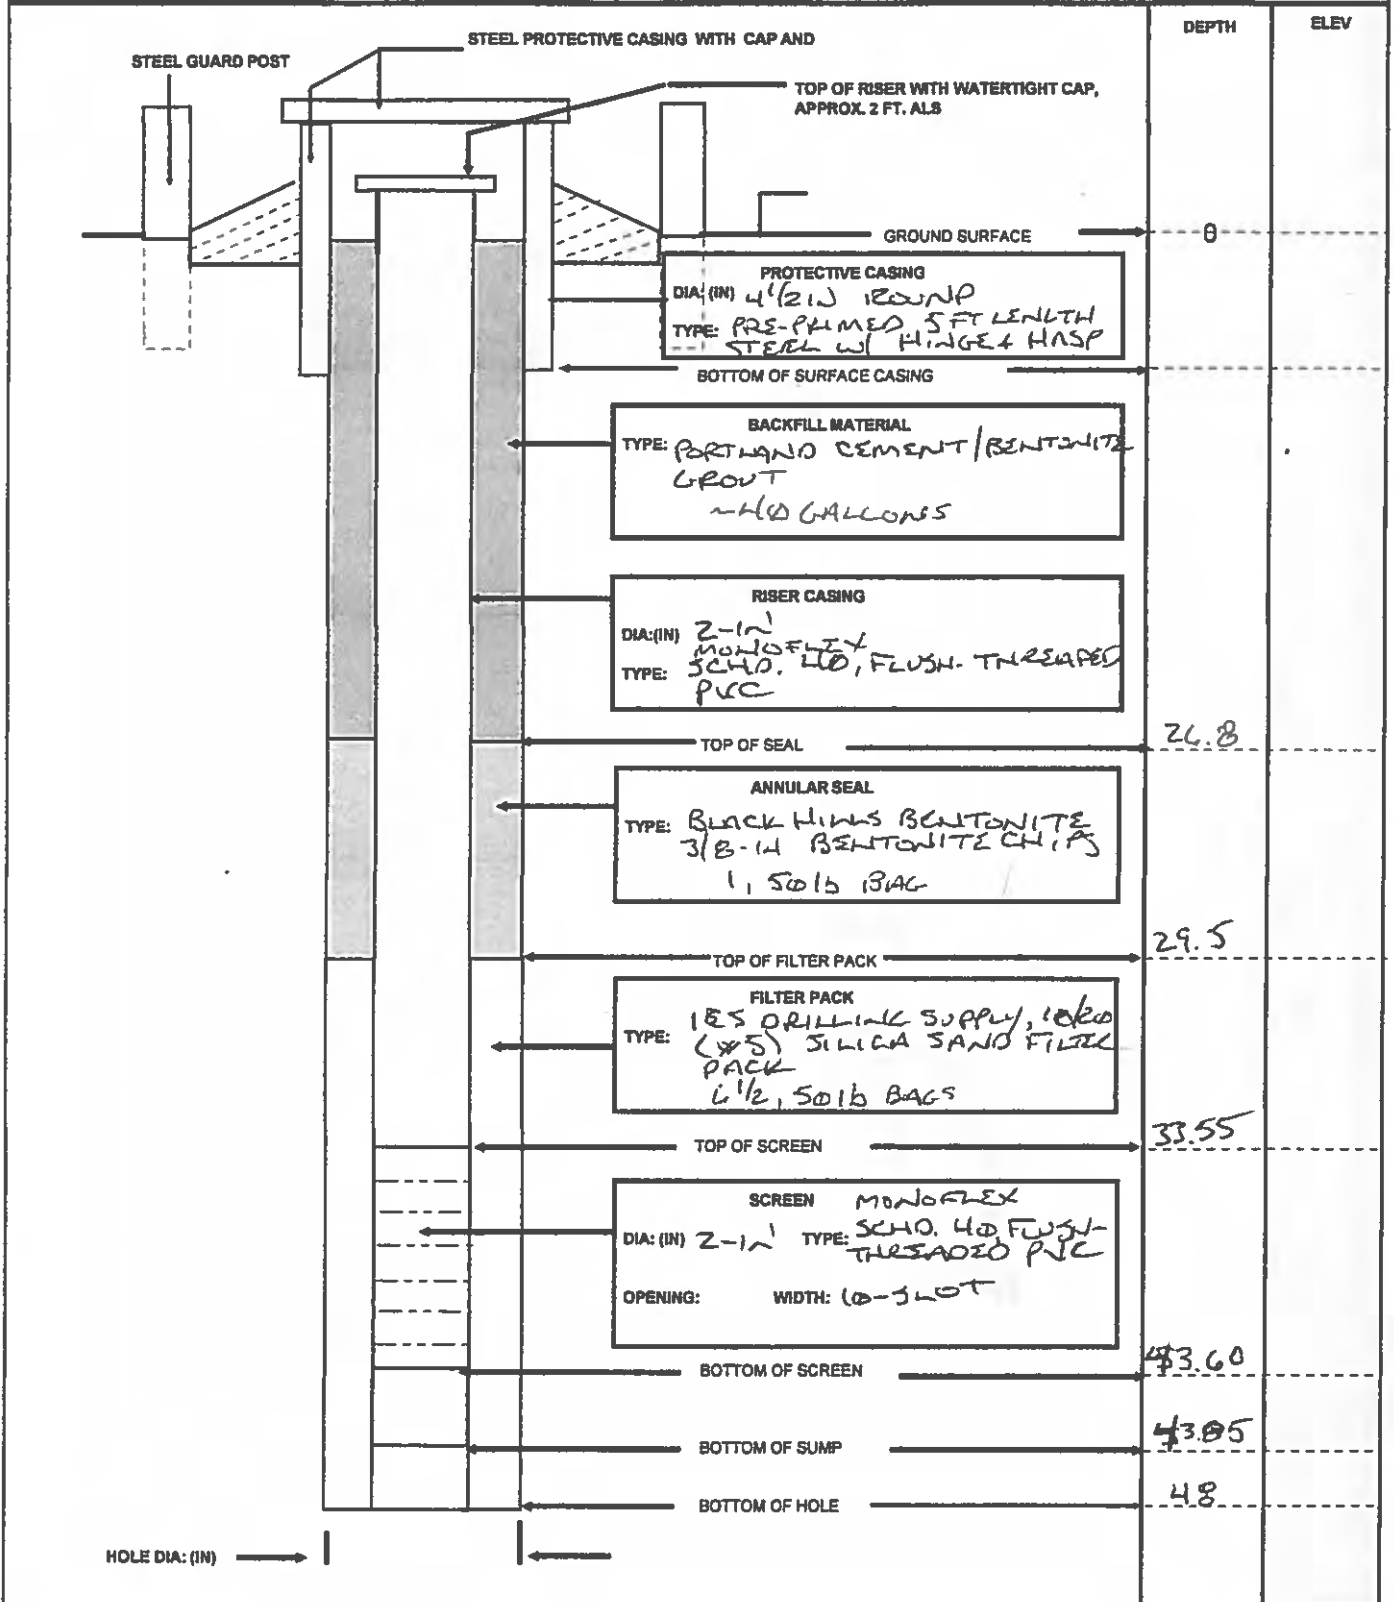 DEPTH
ELEV
STEEL PROTECTIVE CASING WITH CAP AND
STEEL GUARD POST
TOP OF RISER WITH WATERTIGHT CAP,
APPROX. 2 FT. ALS
GROUND SURFACE
0
PROTECTIVE CASING
DIA: (IN) 4 1/2 IN ROUND
TYPE: PRE-PRIMED, 5 FT LENGTH
STEEL W/ HINGE & HASP
BOTTOM OF SURFACE CASING
BACKFILL MATERIAL
TYPE: PORTLAND CEMENT/BENTONITE
GROUT
~40 GALLONS
RISER CASING
DIA:(IN) 2-IN
MONOFLEX
TYPE: SCHD. 40, FLUSH-THREADED
PVC
TOP OF SEAL
26.8
ANNULAR SEAL
TYPE: BLACK HILLS BENTONITE
3/8-IN BENTONITE CHIPS
1, 50 lb BAG
29.5
TOP OF FILTER PACK
FILTER PACK
DRILLING SUPPLY, 10/20
TYPE: (#5) SILICA SAND FILTER
PACK
6 1/2, 50 lb BAGS
33.55
TOP OF SCREEN
SCREEN MONOFLEX
DIA: (IN) 2-IN TYPE: SCHD. 40, FLUSH-
THREADED PVC
OPENING: WIDTH: 10-SLOT
43.60
BOTTOM OF SCREEN
43.85
BOTTOM OF SUMP
48
BOTTOM OF HOLE
HOLE DIA: (IN)